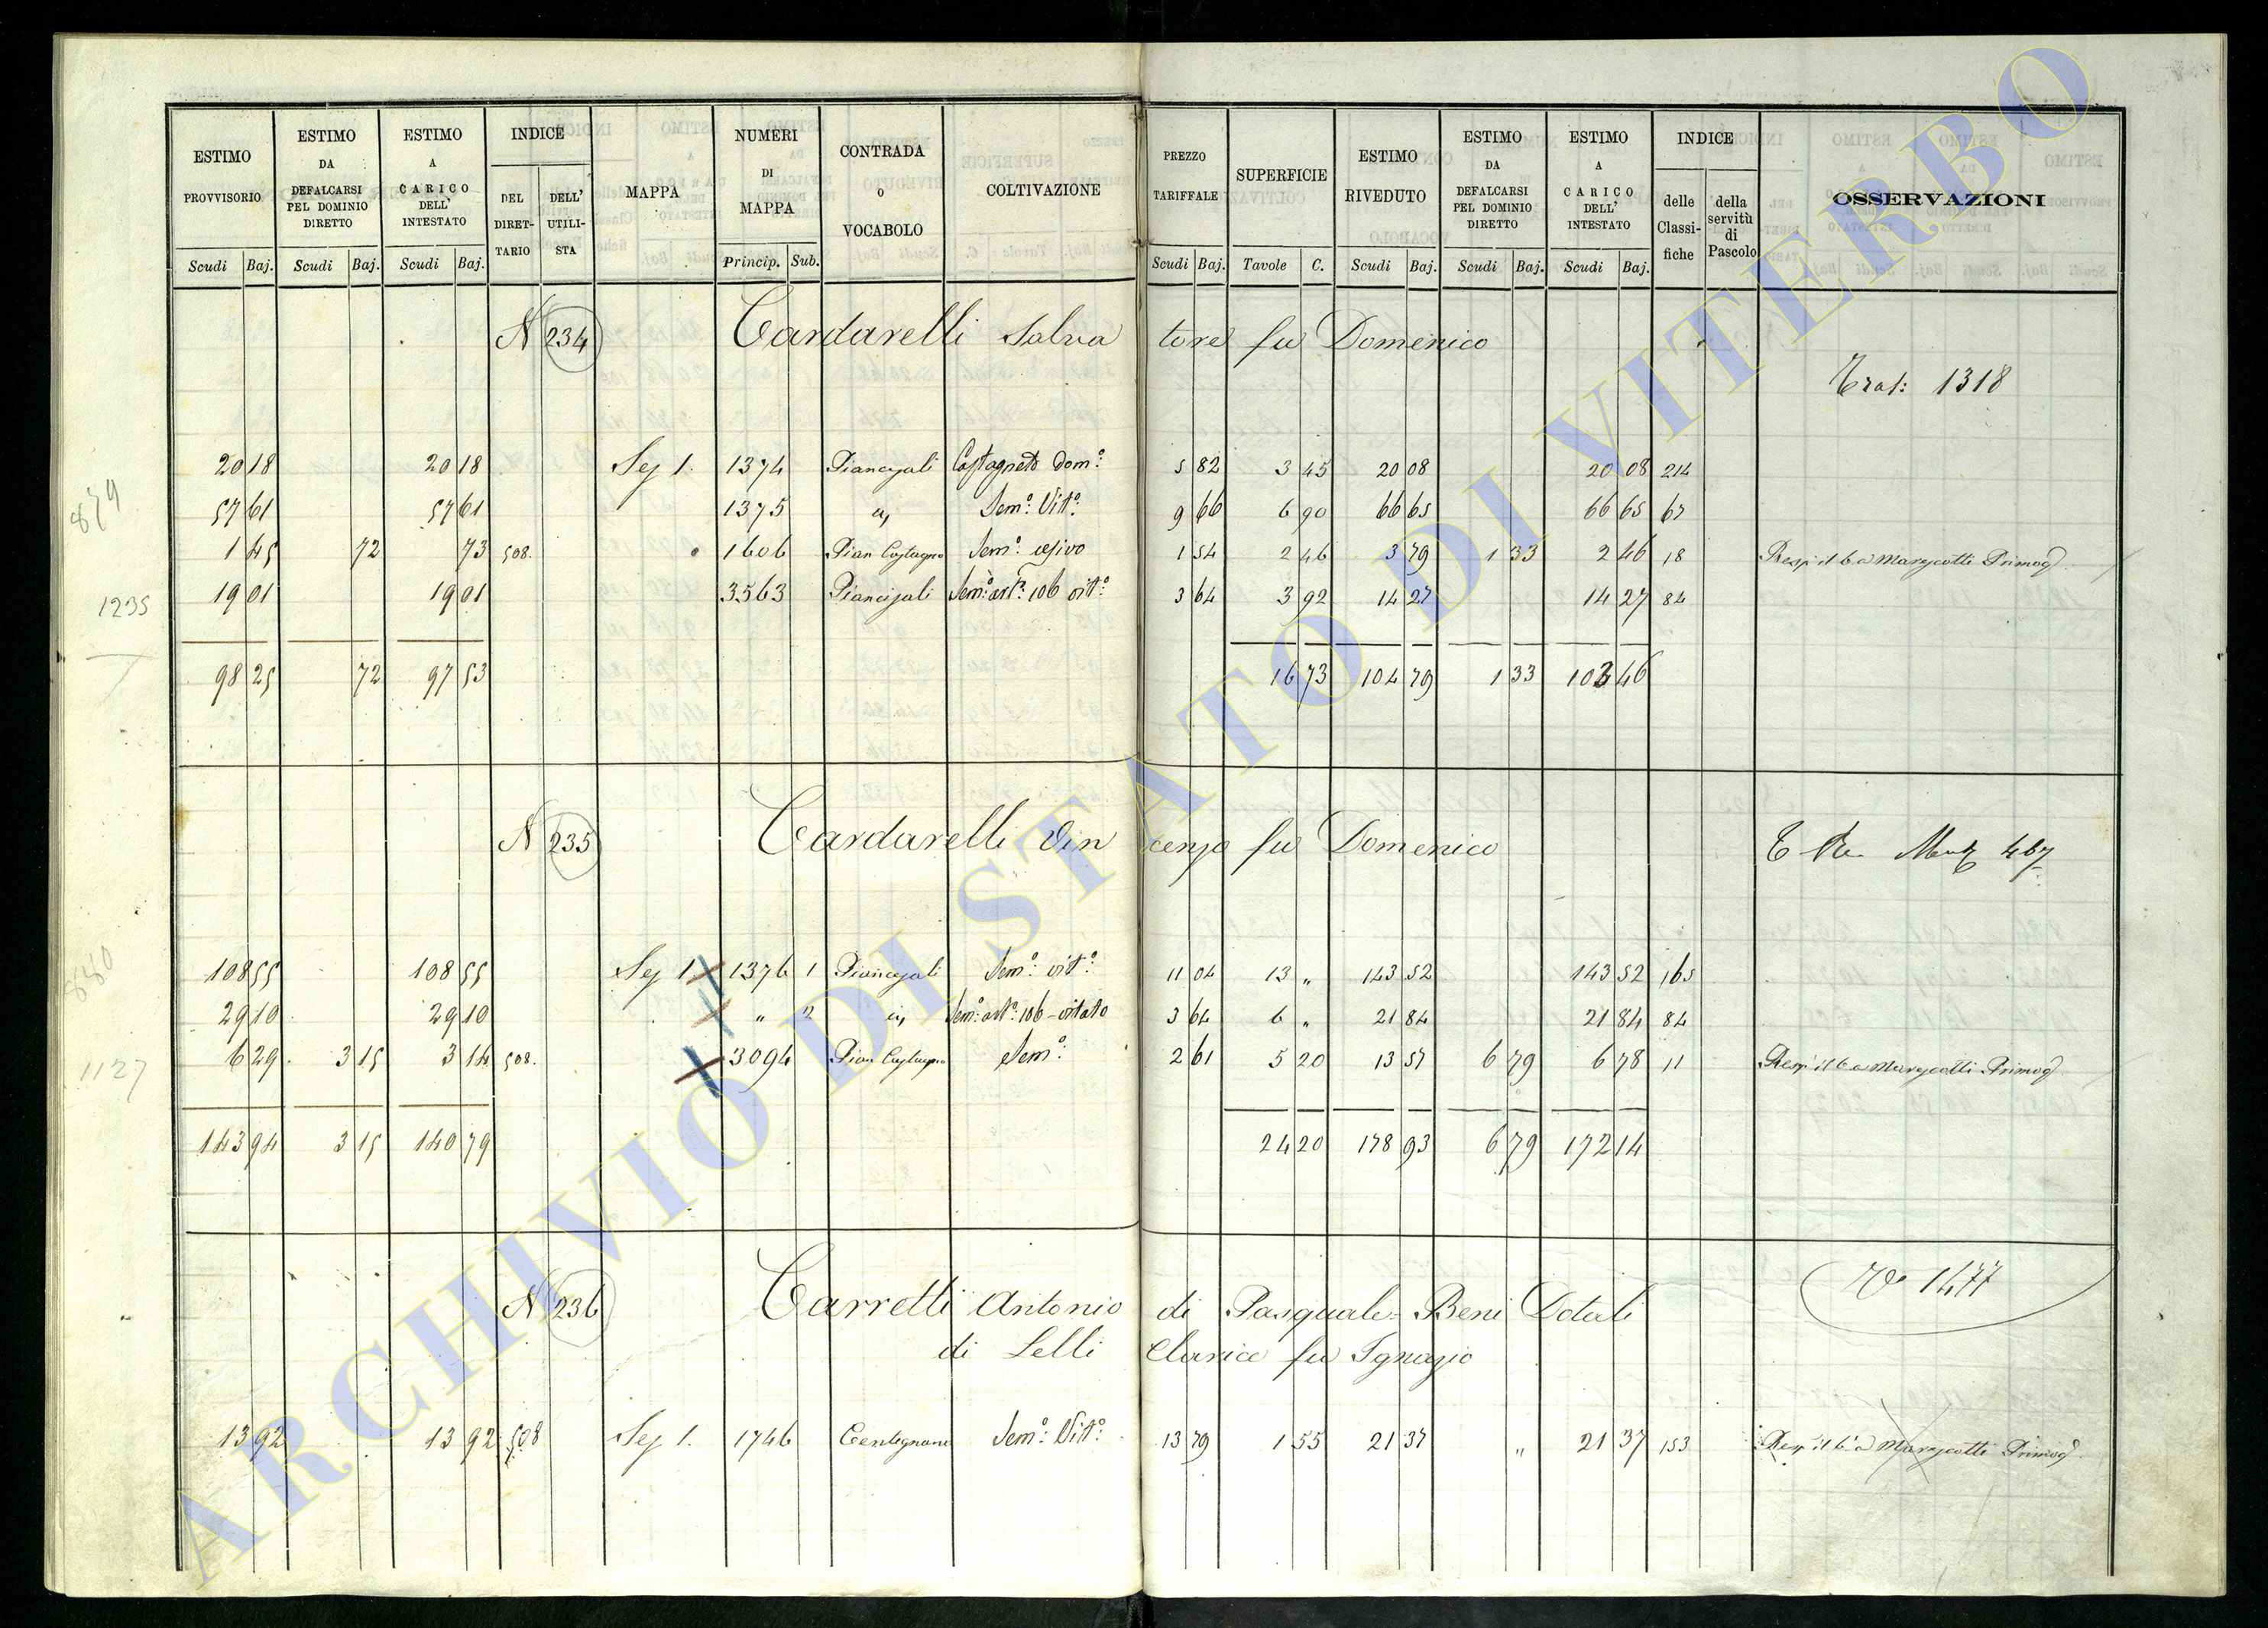 ESTIMO PROVVISORIO | ESTIMO DA DEFALCARSI PEL DOMINIO DIRETTO | ESTIMO A CARICO DELL' INTESTATO | INDICE | MAPPA | NUMERI DI MAPPA | CONTRADA O VOCABOLO | COLTIVAZIONE | PREZZO TARIFFALE | SUPERFICIE | ESTIMO RIVEDUTO | ESTIMO DA DEFALCARSI PEL DOMINIO DIRETTO | ESTIMO A CARICO DELL' INTESTATO | INDICE | OSSERVAZIONI
DEL DIRETTARIO | DELL' UTILISTA | delle Classifiche | della servitù di Pascolo
Scudi Baj. | Scudi Baj. | Scudi Baj. | Princip. Sub. | Scudi Baj. | Tavole C. | Scudi Baj. | Scudi Baj. | Scudi Baj.
N 234 Cardarelli Salvatore fu Domenico
Tras: 1318
20 18 20 18 Sez 1. 1374 Castagneto Dom:º 5 82 3 45 20 08 20 08 214
879
57 61 57 61 1375 Sem:º Vit:º 9 66 6 90 66 65 66 65 67
1 45 72 73 508. 1606 Pian Castagno Sem:º 1 54 2 46 3 79 1 33 2 46 18
1235
19 01 19 01 3563 3 64 3 92 14 27 14 27 84
98 25 72 97 53 16 73 104 79 1 33 103 46
N 235 Cardarelli Vincenzo fu Domenico
467
880
108 55 108 55 Sez 1 1376 1 Sem:º vit:º 11 04 13 " 143 52 143 52 165
29 10 29 10 " 2 3 64 6 " 21 84 21 84 84
6 29 3 15 3 14 508. 3094 Pian Castagno Sem:º 2 61 5 20 13 57 6 79 6 78 11
1127
143 94 3 15 140 79 24 20 178 93 6 79 172 14
N 236 Carretti Antonio di Pasquale = Beni Dotali
1477
di Lelli Clarice fu Ignazio
13 92 13 92 508 Sez 1. 1746 Centignano Sem:º Vit:º 13 79 1 55 21 37 " 21 37 153
ARCHIVIO DI STATO DI VITERBO